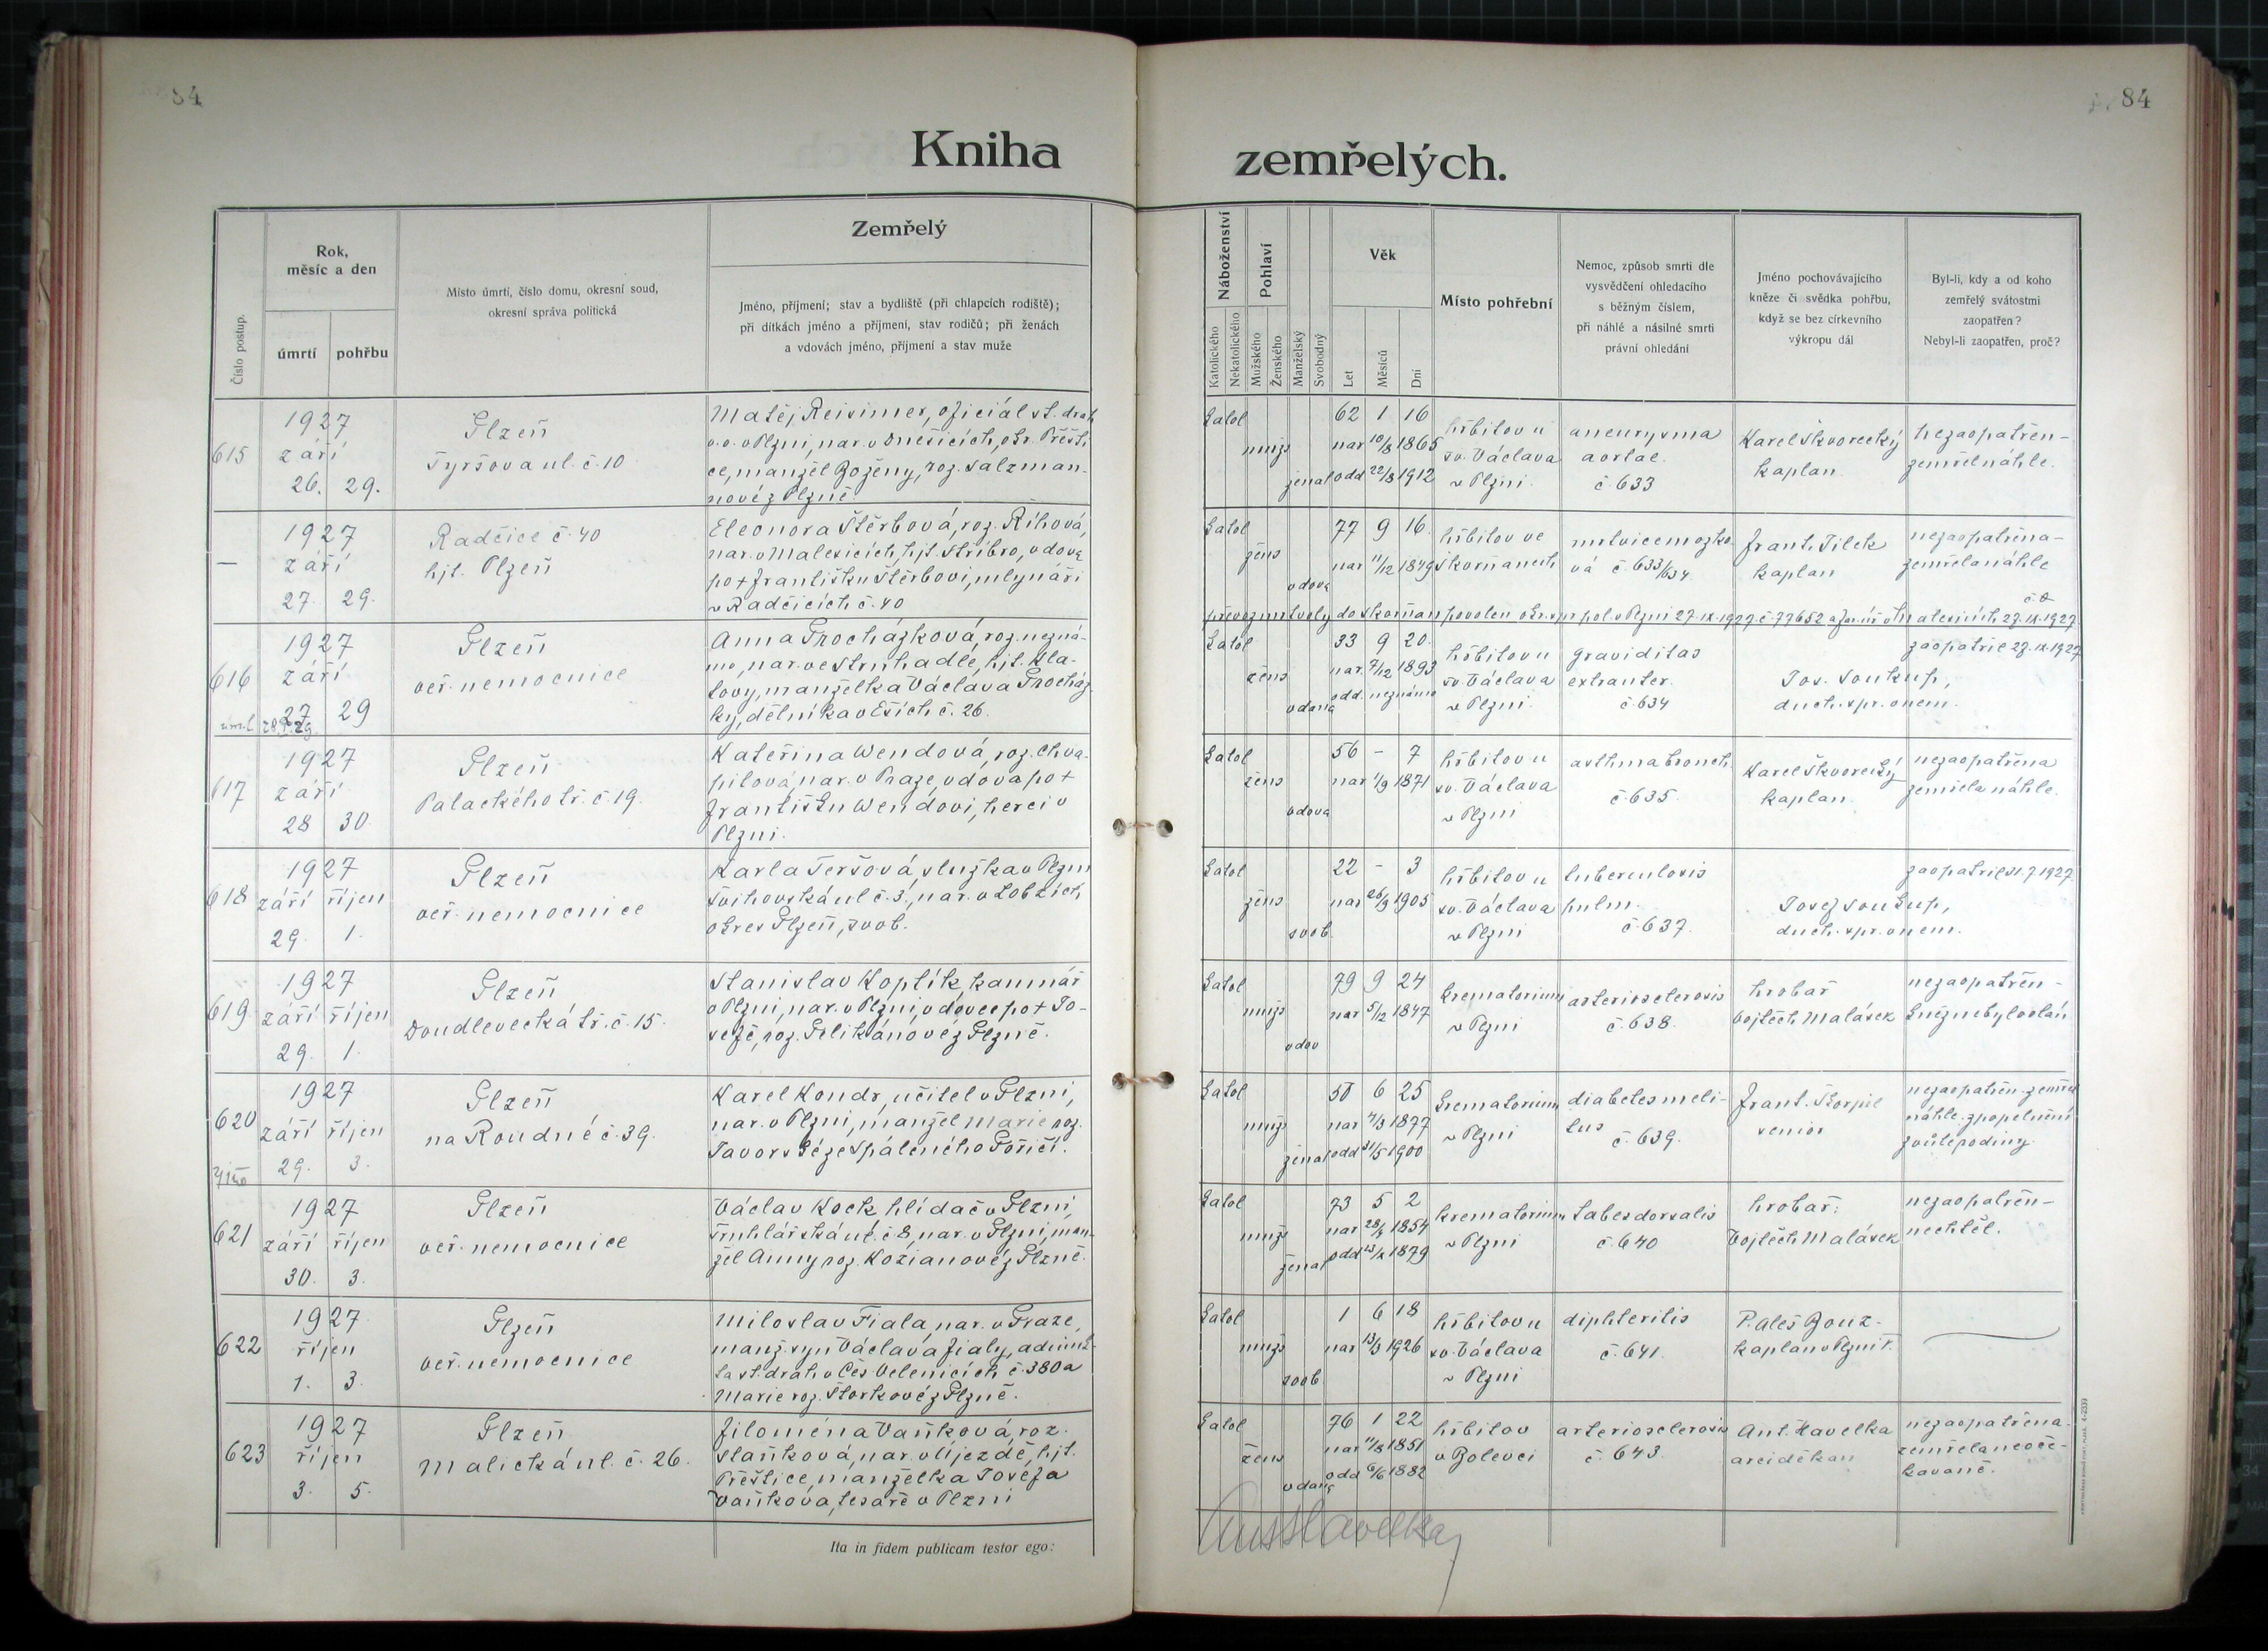 84
84
Kniha
zemřelých.
Číslo postup.
Rok,
měsíc a den
úmrtí
pohřbu
Místo úmrtí, číslo domu, okresní soud,
okresní správa politická
Zemřelý
Jméno, příjmení; stav a bydliště (při chlapcích rodiště);
při dítkách jméno a příjmení, stav rodičů; při ženách
a vdovách jméno, příjmení a stav muže
Náboženství
Katolického
Nekatolického
Pohlaví
Mužského
Ženského
Manželský
Svobodný
Věk
Let
Měsíců
Dní
Místo pohřební
Nemoc, způsob smrti dle
vysvědčení ohledacího
s běžným číslem,
při náhlé a násilné smrti
právní ohledání
Jméno pochovávajícího
kněze či svědka pohřbu,
když se bez církevního
výkropu dál
Byl-li, kdy a od koho
zemřelý svátostmi
zaopatřen?
Nebyl-li zaopatřen, proč?
615
1927
září
26. 29.
Plzeň
Tyršova ul. č. 10
Matěj Reisimer, oficiál st. drah
v. v. v Plzni, nar. v Dnešicích, okr. Přešti-
ce, manžel Boženy, roz. Salzman-
nové z Plzně.
katol
muž
ženat
62 1 16
nar 10/8 1865
odd 22/8 1912
hřbitov u
sv. Václava
v Plzni.
aneurysma
aortae.
č. 633
Karel Škvorecký
kaplan.
nezaopatřen-
zemřel náhle.
—
1927
září
27. 29.
Radčice č. 40
hjt. Plzeň
Eleonora Štěrbová, roz. Říhová,
nar. v Malesicích, hjt. Stříbro, vdova
po + Františku Štěrbovi, mlynáři
v Radčicích č. 40
katol
žens
vdova
77 9 16.
nar 11/12 1849
hřbitov ve
Skvrňanech
mrtvice mozko-
vá č. 633/634.
Frant. Tilek
kaplan
nezaopatřena-
zemřela náhle
převoz mrtvoly do Skvrňan povolen okr. spr. pol. v Plzni 27. IX. 1927. č. 77652 a far. úř. v Malesicích 27. IX. 1927.
616
1927
září
27 29
Plzeň
veř. nemocnice
Anna Procházková, roz. nezná-
mo, nar. ve Struhadle, hjt. Kla-
tovy, manželka Václava Procház-
ky, dělníka v Ejších č. 26.
katol
žens
vdaná
33 9 20.
nar. 7/12 1893
odd. neznámo
hřbitov u
sv. Václava
v Plzni.
graviditas
extrauter.
č. 634
Jos. Soukup,
duch. spr. v nem.
zaopatřil 27. IX. 1927
617
1927
září
28 30.
Plzeň
Palackého tř. č. 19.
Kateřina Wendová, roz. Chva-
pilová, nar. v Praze, vdova po +
Františku Wendovi, herci v
Plzni.
katol
žens
vdova
56 – 7
nar 1/9 1871
hřbitov u
sv. Václava
v Plzni
asthma bronch.
č. 635.
Karel Škvorecký
kaplan.
nezaopatřena
zemřela náhle.
618
1927
září říjen
29. 1.
Plzeň
veř. nemocnice
Karla Teršová, služka v Plzni
Švihovská ul. č. 3., nar. v Lobzích
okres Plzeň, svob.
katol
žens
svob.
22 – 3
nar 26/9 1905
hřbitov u
sv. Václava
v Plzni
tuberculosis
pulm.
č. 637.
Josef Soukup,
duch. spr. v nem.
zaopatřil 21. 7. 1927
619
1927
září říjen
29. 1.
Plzeň
Doudlevecká tř. č. 15.
Stanislav Koptík, kamnář
v Plzni, nar. v Plzni, vdovec po + Jo-
sefě, roz. Pelikánové z Plzně.
katol
muž
vdov
79 9 24
nar 5/12 1847
krematorium
v Plzni
arteriosclerosis
č. 638.
hrobař
Vojtěch Malásek
nezaopatřen -
kněz nebyl volán
620
1927
září říjen
29. 3.
Plzeň
na Roudné č. 39.
Karel Kondr, učitel v Plzni,
nar. v Plzni, manžel Marie roz.
Javorské ze Spáleného Poříčí.
katol
muž
ženat
50 6 25
nar 4/3 1877
odd 31/5 1900
krematorium
v Plzni
diabetes meli-
tus
č. 639.
Frant. Škorpil
senior
nezaopatřen-zemřel
náhle. zpopelnění
z vůle rodiny.
621
1927
září říjen
30. 3.
Plzeň
veř. nemocnice
Václav Kock, hlídač v Plzni,
Truhlářská ul. č. 8, nar. v Plzni, man-
žel Anny roz. Kozianové z Plzně.
katol
muž
ženat
73 5 2
nar 28/4 1854
odd 23/2 1879
krematorium
v Plzni
tabes dorsalis
č. 640
hrobař:
Vojtěch Malásek
nezaopatřen-
nechtěl.
622
1927
říjen
1. 3.
Plzeň
veř. nemocnice
Miloslav Fiala, nar. v Praze,
manž. syn Václava Fialy, adjunk-
ta st. drah v Čes Velenicích č. 380 a
Marie roz. Štorkové z Plzně.
katol
muž
svob
1 6 18
nar 13/3 1926
hřbitov u
sv. Václava
v Plzni
diphteritis
č. 641.
P. Aleš Bouz-
kaplan v Plzni I.
623
1927
říjen
3. 5.
Plzeň
Malická ul. č. 26.
Filoména Vaňková, roz.
Slaňková, nar. v Újezdě, hjt.
Přeštice, manželka Josefa
Vaňkova, tesaře v Plzni
katol
žens
vdaná
76 1 22
nar 11/8 1851
odd 6/6 1882
hřbitov
v Bolevci
arteriosclerosis
č. 643.
Ant. Havelka
arciděkan
nezaopatřena.
zemřela neoče-
kávaně.
Ita in fidem publicam testor ego:
Ant. Havelka